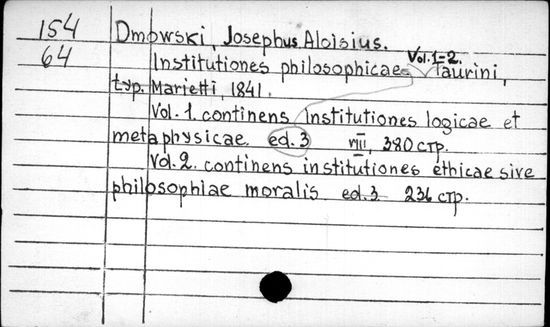 154
64
Dmowski, Josephus Aloisius.
Institutiones philosophicae. Vol. 1-2. Taurini,
typ. Marietti, 1841.
Vol. 1. continens Institutiones logicae et
metaphysicae. ed. 3 VIII, 380 стр.
Vol. 2. continens institutiones ethicae sive
philosophiae moralis ed. 3 236 стр.